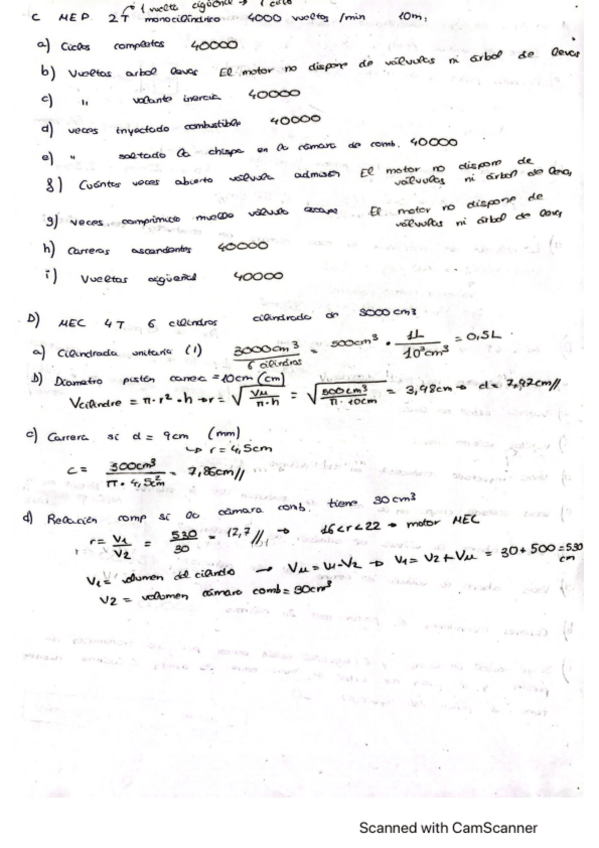 1 vuelta cigüeñal → 1 ciclo
C MEP 2T monocilíndrico 4000 vueltos /min 10m,
a) Ciclos completos 40000
b) Vueltas arbol levas El motor no dispone de válvulas ni árbol de levas
c) " volante inercia 40000
d) veces inyectado combustible 40000
e) " saltado la chispa en la cámara de comb. 40000
f) Cuántas veces abierto válvula admision El motor no dispone de válvulas ni árbol de levas
g) veces comprimido muelle válvula escape El motor no dispone de válvulas ni árbol de levas
h) Carreras ascendentes 40000
i) Vueltas cigüeñal 40000
D) MEC 4T 6 cilindros cilindrada de 3000 cm3
a) Cilindrada unitaria (l) 3000cm3 / 6 cilindros = 500cm3 · 1L / 10³cm3 = 0,5L
b) Diametro pistón carrera = 10cm (cm)
Vcilindro = π·r²·h → r = √(Vu / π·h) = √(500cm3 / π·10cm) = 3,98cm → d = 7,97cm//
c) Carrera si d = 9cm (mm)
↳ r = 4,5cm
C = 500cm3 / π·4,5²cm = 7,86cm//
d) Relación comp si la cámara comb. tiene 30 cm3
r = V1 / V2 = 530 / 30 = 17,7// → 16<r<22 → motor MEC
V1 = volumen del cilindro → Vu = V1-V2 → V1 = V2 + Vu = 30 + 500 = 530 cm
V2 = volumen cámara comb = 30cm3
Scanned with CamScanner